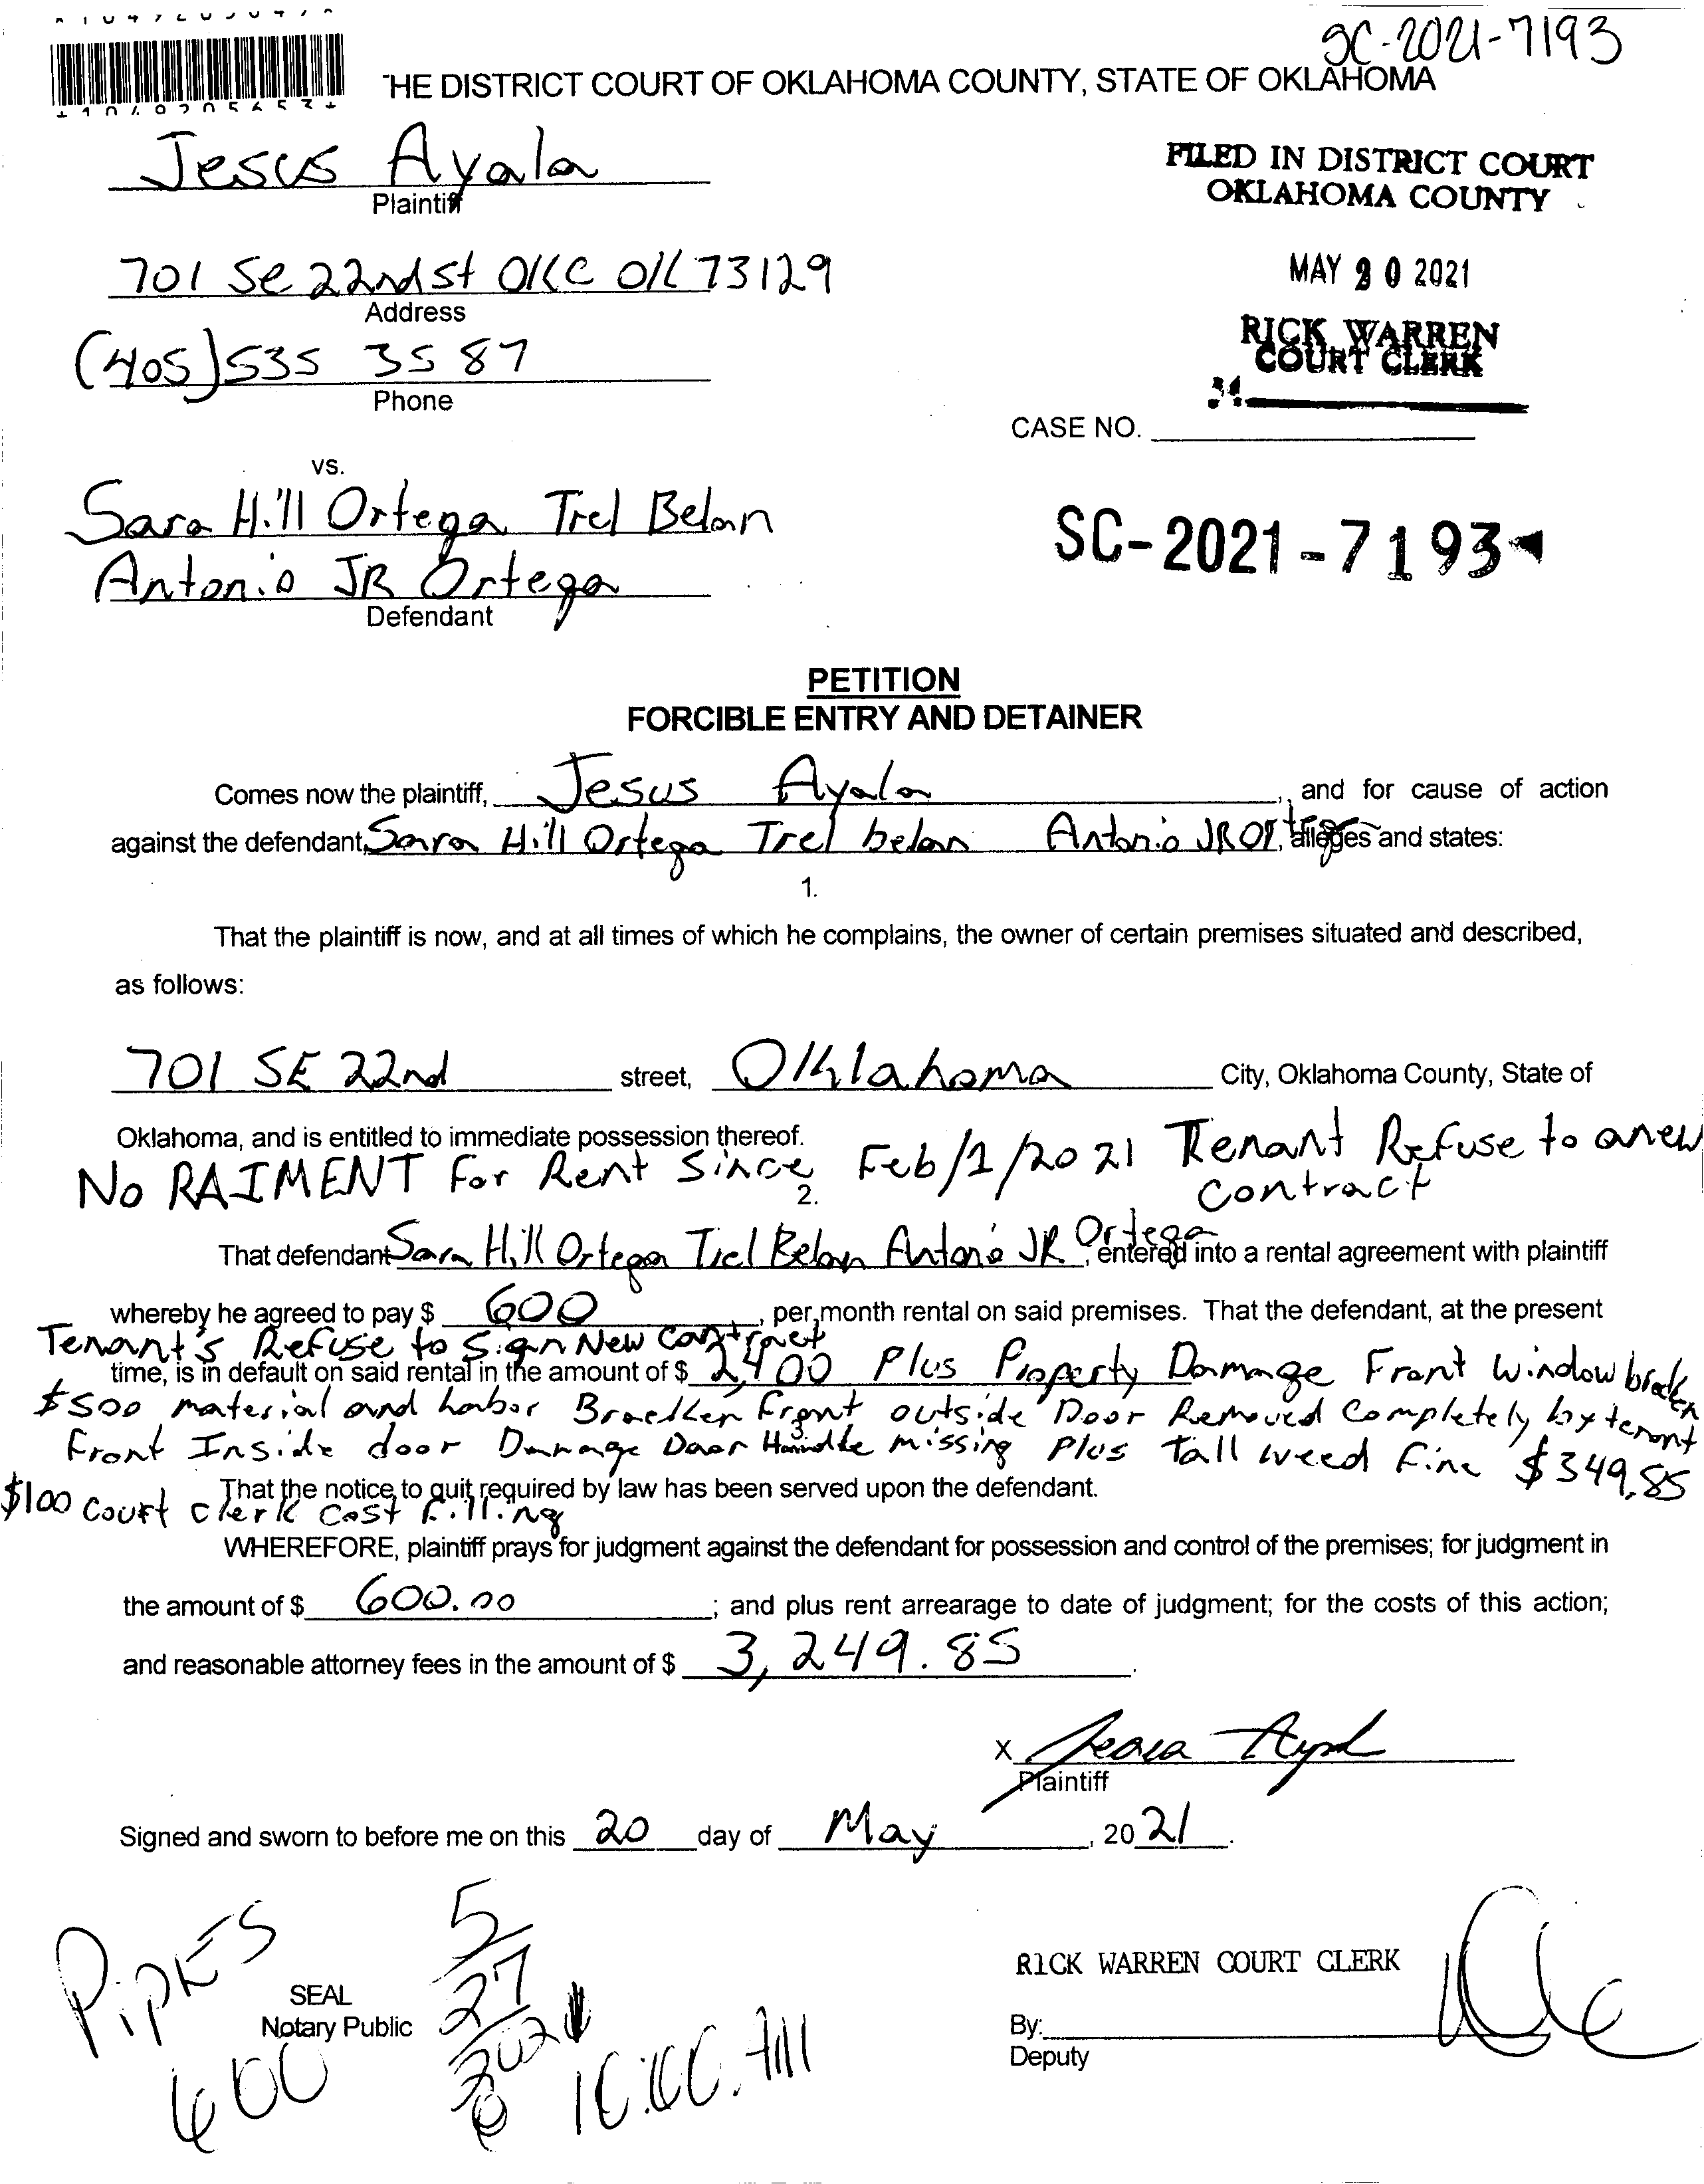 SC-2021-7193
THE DISTRICT COURT OF OKLAHOMA COUNTY, STATE OF OKLAHOMA
Jesus Ayala
Plaintiff
FILED IN DISTRICT COURT
OKLAHOMA COUNTY
701 Se 22nd st OKC OK 73129
Address
MAY 20 2021
(405) 535 3587
Phone
RICK WARREN
COURT CLERK
CASE NO.
vs.
Sara Hill Ortega Trel Belan
Antonio JR Ortega
Defendant
SC-2021-7193
PETITION
FORCIBLE ENTRY AND DETAINER
Comes now the plaintiff, Jesus Ayala, and for cause of action
against the defendant, Sara Hill Ortega Trel belan Antonio JR Ortega, alleges and states:
1.
That the plaintiff is now, and at all times of which he complains, the owner of certain premises situated and described,
as follows:
701 SE 22nd street, Oklahoma City, Oklahoma County, State of
Oklahoma, and is entitled to immediate possession thereof.
No RAIMENT For Rent Since Feb/1/2021 Tenant Refuse to a new
contract
2.
That defendant Sara Hill Ortega Trel Belan Antonio JR Ortega, entered into a rental agreement with plaintiff
whereby he agreed to pay $ 600, per month rental on said premises. That the defendant, at the present
Tenant's Refuse to Sign New contract
time, is in default on said rental in the amount of $ 2,400 Plus Property Damage Front window bracken
$500 material and habor Bracken Front outside Door Removed Completely by tenant
3.
Front Inside door Damage Door Handle missing Plus Tall weed Fine $349.85
That the notice to quit required by law has been served upon the defendant.
$100 Court clerk Cost Filling
WHEREFORE, plaintiff prays for judgment against the defendant for possession and control of the premises; for judgment in
the amount of $ 600.00; and plus rent arrearage to date of judgment; for the costs of this action;
and reasonable attorney fees in the amount of $ 3,249.85.
X
Plaintiff
Signed and sworn to before me on this 20 day of May, 2021.
PIPKES
SEAL
Notary Public
600
5/27/2021
10:00 AM
RICK WARREN COURT CLERK
By:
Deputy